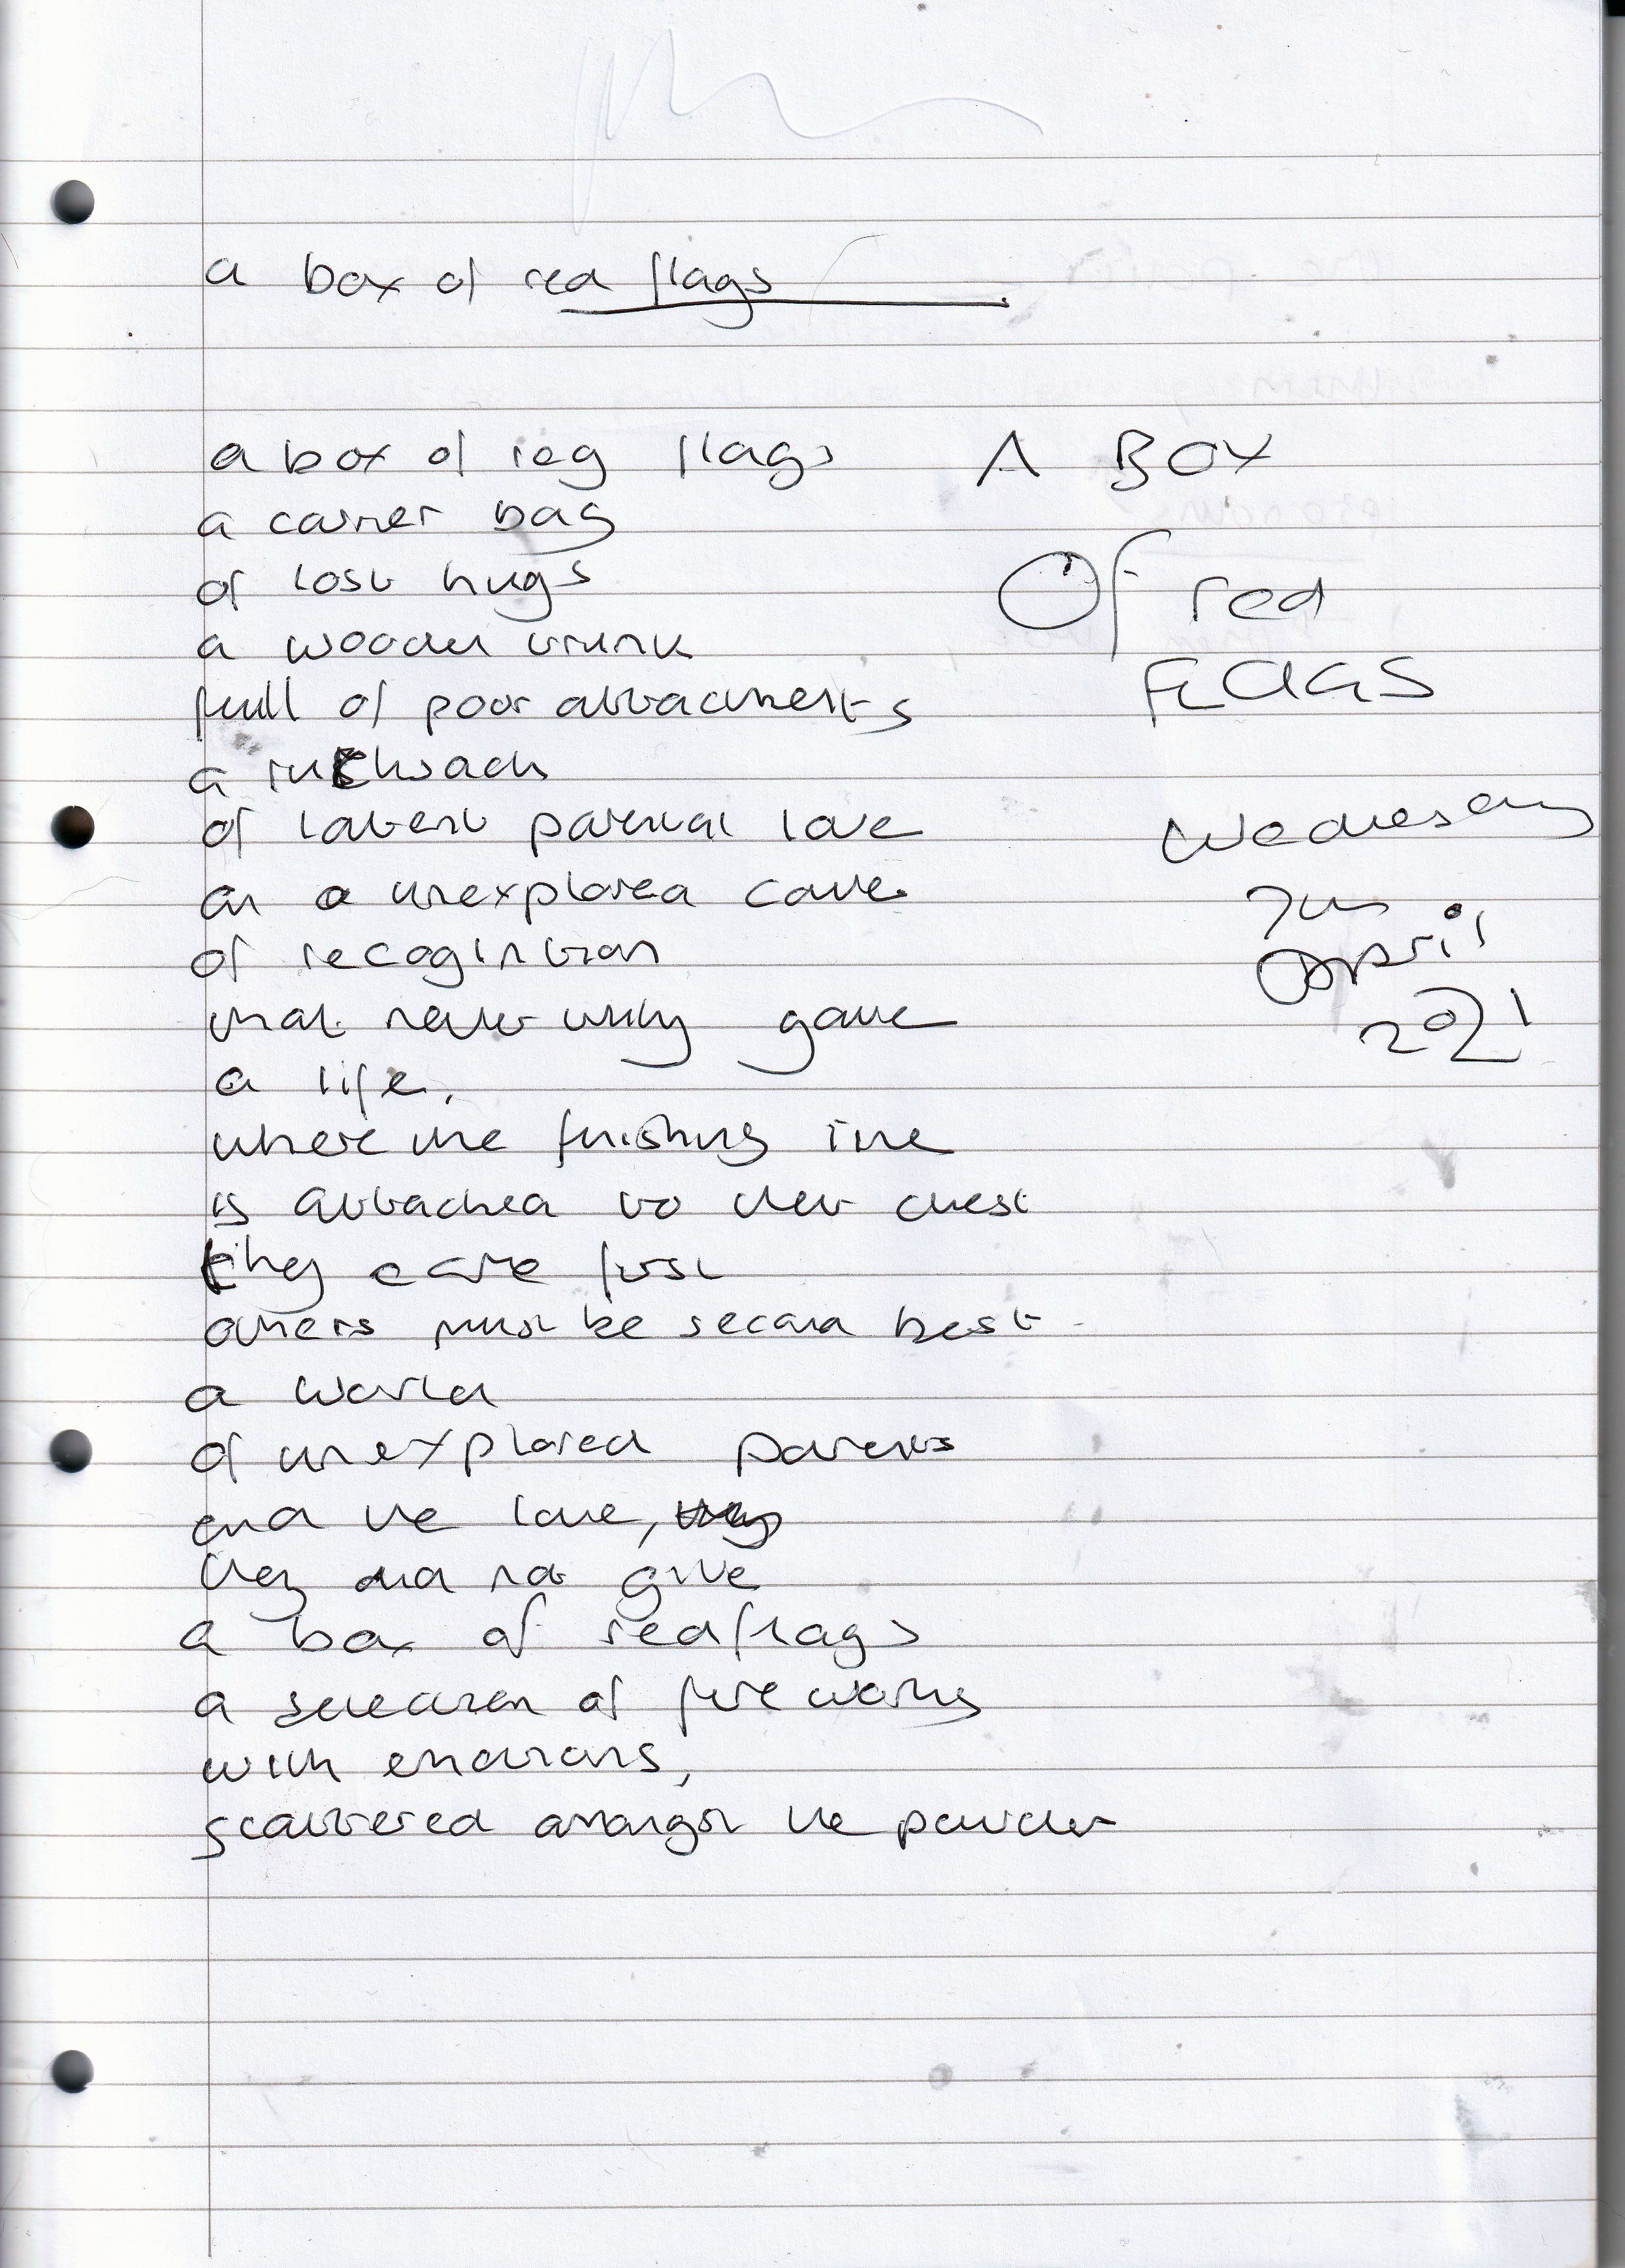 a box of red flags
a box of reg flags
a carrier bag
of lost hugs
a wooden trunk
full of poor attachments
a
of latent parental love
an a unexplored cave
of recogintion
that never truly gave
a life,
where the finishing line
is attached to their chest
they came first
others must be second best
a world
of unexplored parents
and the love, they
they did not give
a box of red flags
a selection of fireworks
with emotions,
scattered amongst the powder
A BOX
Of red
FLAGS
Wednesday
7th
April
2021